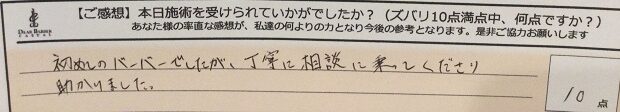 【ご感想】本日施術を受けられていかがでしたか？（ズバリ10点満点中、何点ですか？）
あなた様の率直な感想が、私達の何よりの力となり今後の参考となります。是非ご協力お願いします
DEAR BARBER
初めてのバーバーでしたが、丁寧に相談に乗ってくださり
助かりました。
10点